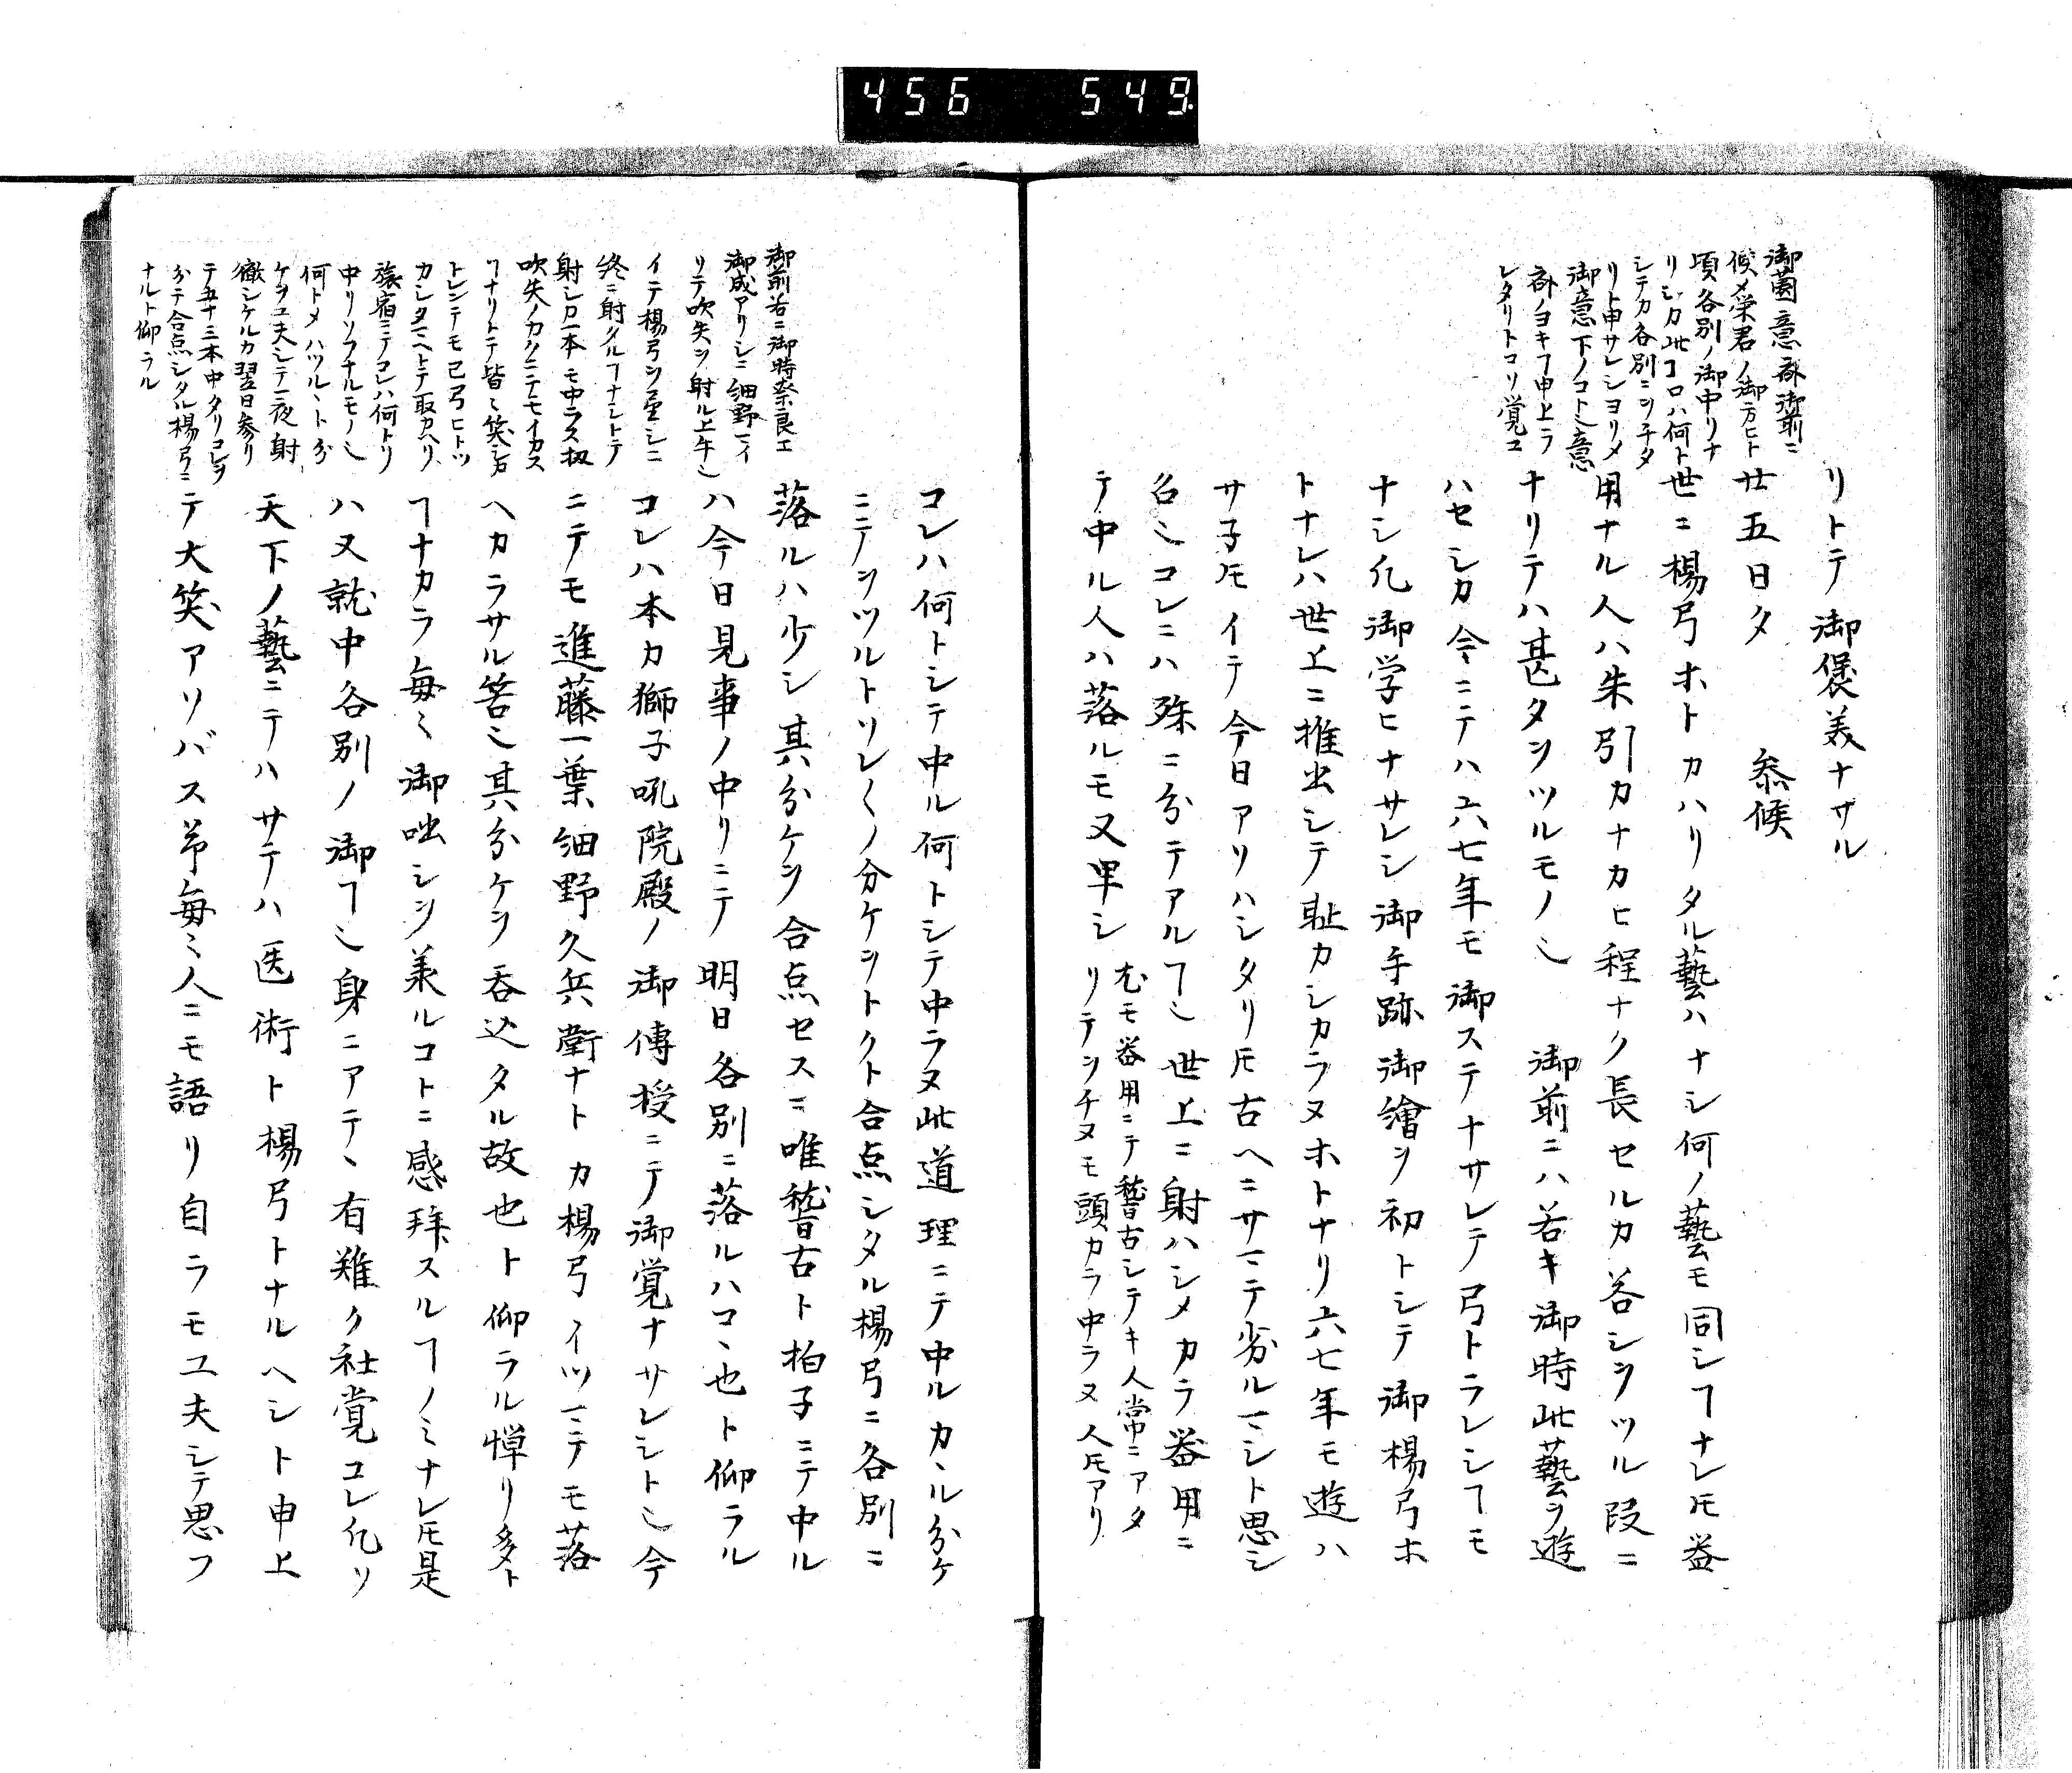 456 549
リトテ御褒美ナサル
廿五日夕 叅候
世ニ楊弓ホトカハリタル藝ハナシ何ノ藝モ同シヿナレ𪜈器
用ナル人ハ朱引カナカヒ程ナク長セルカ各シヲツル段ニ
ナリテハ甚タヲツルモノ也 御前ニハ若キ御時此藝ヲ遊
ハセシカ今ニテハ六七年モ御ステナサレテ弓トラレシヿモ
ナシ凡御学ヒナサレシ御手跡御繪ヲ初トシテ御楊弓ホ
トナレハ世上ニ推出シテ耻カシカラヌホトナリ六七年モ遊ハ
サ子𪜈イテ今日アソハシタリ𪜈古ヘニサマテ劣ルマシト思シ
召也コレニハ殊ニ分テアルヿ也世上ニ射ハシメカラ器用ニ
テ中ル人ハ落ルモ又早シ尤モ器用ニテ稽古シテキ人常ニアタ
リテヲチヌモ頭カラ中ラヌ人𪜈アリ
御薗意斎御前ニ
候メ栄君ノ御方ヒト
頃各別ノ御中リナ
リシカ此コロハ何ト
シテカ各別ニヲチタ
リト申サレシヨリメ
御意下ノコト也意
斎ノヨキヿ申上ラ
レタリトコソ覚ユ
コレハ何トシテ中ル何トシテ中ラヌ此道理ニテ中ルカヽル分ケ
ニテヲツルトソレ〱ノ分ケヲトクト合点シタル楊弓ニ各別ニ
落ルハ少シ其分ケヲ合点セスニ唯稽古ト拍子ニテ中ル
ハ今日見事ノ中リニテ明日各別ニ落ルハコヽ也ト仰ラル
コレハ本カ獅子吼院殿ノ御傳授ニテ御覚ナサレシト也今
ニテモ進藤一葉細野久兵衛ナトカ楊弓イツマテモ落
ヘカラサル筈也其分ケヲ呑込タル故也ト仰ラル憚リ多ト
ヿナカラ毎〻御咄シヲ羕ルコトニ感拜スルヿノミナレ𪜈是
ハ又就中各別ノ御ヿ也身ニアテヽ有難ク社覚コレ凡ソ
天下ノ藝ニテハサテハ医術ト楊弓トナルヘシト申上
テ大笑アソバス爷毎〻人ニモ語リ自ラモ工夫シテ思フ
御前若ニ御時奈良エ
御成アリシニ細野マイ
リテ吹矢ヲ射ル上午也
イテ楊弓ヲ望シニ
終ニ射タルヿナシトテ
射シカ一本モ中ラス扨
吹矢ノカクニテモイカス
ヿナリトテ皆〻笑シ召
トレンテモ已弓ヒトツ
カシタマヘトテ取カヘリ
旅宿ニテコレハ何トソ
中リソフナルモノ也
何トメハツルヽト分
ケヲ工夫シテ一夜射
徹シケルカ翌日参リ
テ五十三本中タリコレヲ
分テ合点シタル楊弓ニ
ナルト仰ラル